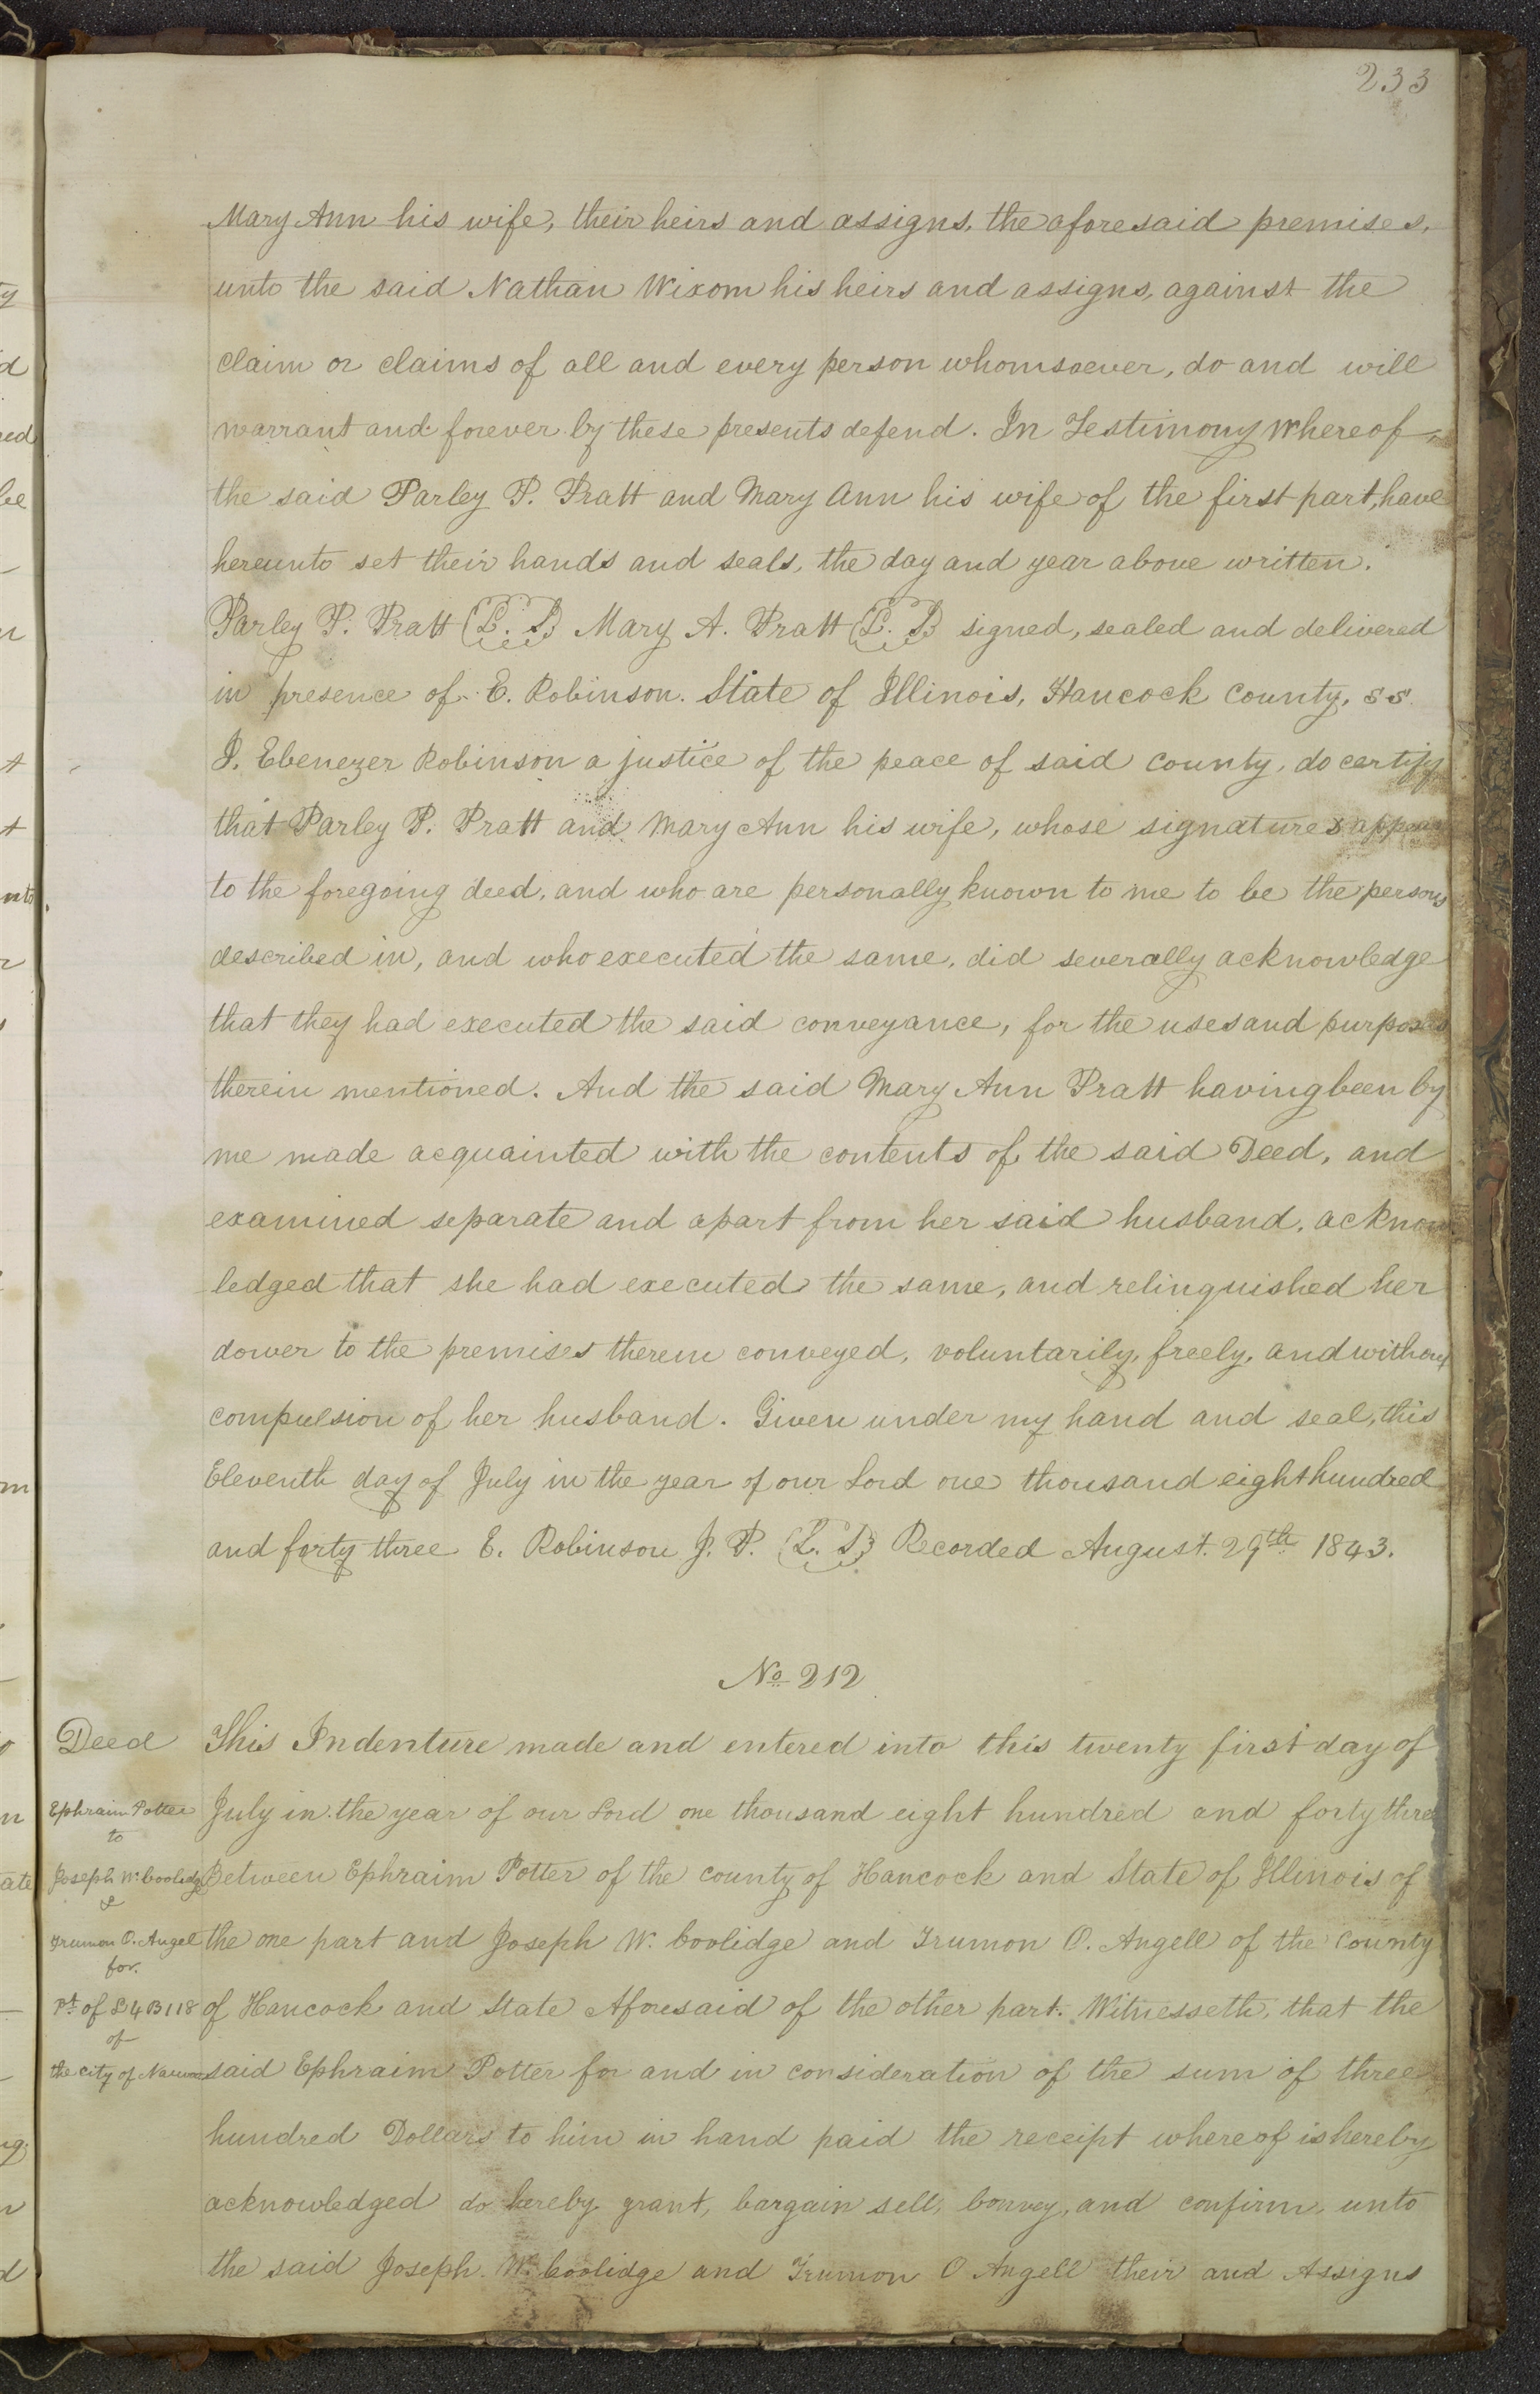 233
Mary Ann his wife, their heirs and assigns, the aforesaid premises,
unto the said Nathan Wixom his heirs and assigns, against the
claim or claims of all and every person whomsoever, do and will
warrant and forever by these presents defend. In Testimony Whereof,
the said Parley P. Pratt and Mary Ann his wife of the first part, have
hereunto set their hands and seals, the day and year above written.
Parley P. Pratt (L. S) Mary A. Pratt (L. S) signed, sealed and delivered
in presence of E. Robinson. State of Illinois, Hancock County, ss
I. Ebenezer Robinson a justice of the peace of said County, do certify
that Parley P. Pratt and Mary Ann his wife, whose signatures appear
to the foregoing deed, and who are personally known to me to be the persons
described in, and who executed the same, did severally acknowledge
that they had executed the said conveyance, for the uses and purposes
therein mentioned. And the said Mary Ann Pratt having been by
me made acquainted with the contents of the said Deed, and
examined separate and apart from her said husband, acknow
ledged that she had executed the same, and relinquished her
dower to the premises therein conveyed, voluntarily, freely, and without
compulsion of her husband. Given under my hand and seal, this
Eleventh day of July in the year of our Lord one thousand eight hundred
and forty three E. Robinson J. P. (L. S) Recorded August. 29th 1843.
No 212
Deed
Ephraim Potter
to
Joseph W. Coolidge
&
Trumon O. Angel
for.
Pt of L 4 B 118
of
the City of Nauvoo
This Indenture made and entered into this twenty first day of
July in the year of our Lord one thousand eight hundred and forty three
Between Ephraim Potter of the County of Hancock and State of Illinois of
the one part and Joseph W. Coolidge and Trumon O. Angell of the County
of Hancock and State Aforesaid of the other part. Witnesseth, that the
said Ephraim Potter for and in consideration of the sum of three
hundred Dollars to him in hand paid the receipt whereof is hereby
acknowledged do hereby grant, bargain sell, Convey, and confirm, unto
the said Joseph. W. Coolidge and Trumon O Angell their and Assigns